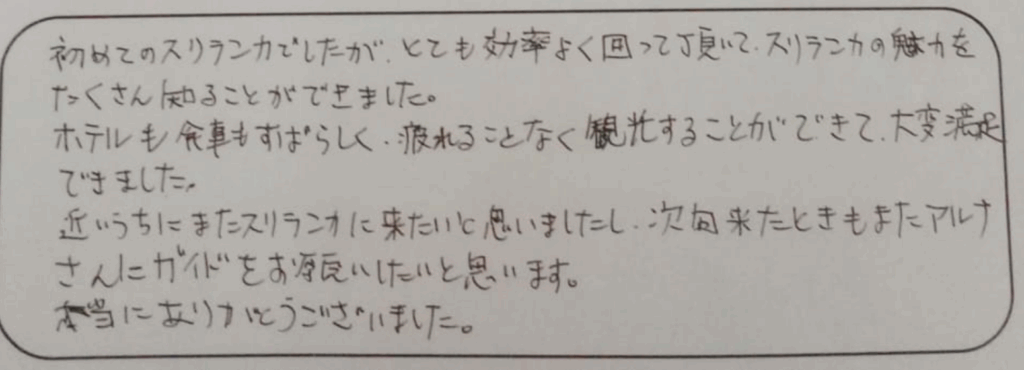 初めてのスリランカでしたが、とても効率よく回って頂いて、スリランカの魅力を
たくさん知ることができました。
ホテルも食事もすばらしく、疲れることなく観光することができて、大変満足
できました。
近いうちにまたスリランカに来たいと思いましたし、次回来たときもまたアルナ
さんにガイドをお願いしたいと思います。
本当にありがとうございました。